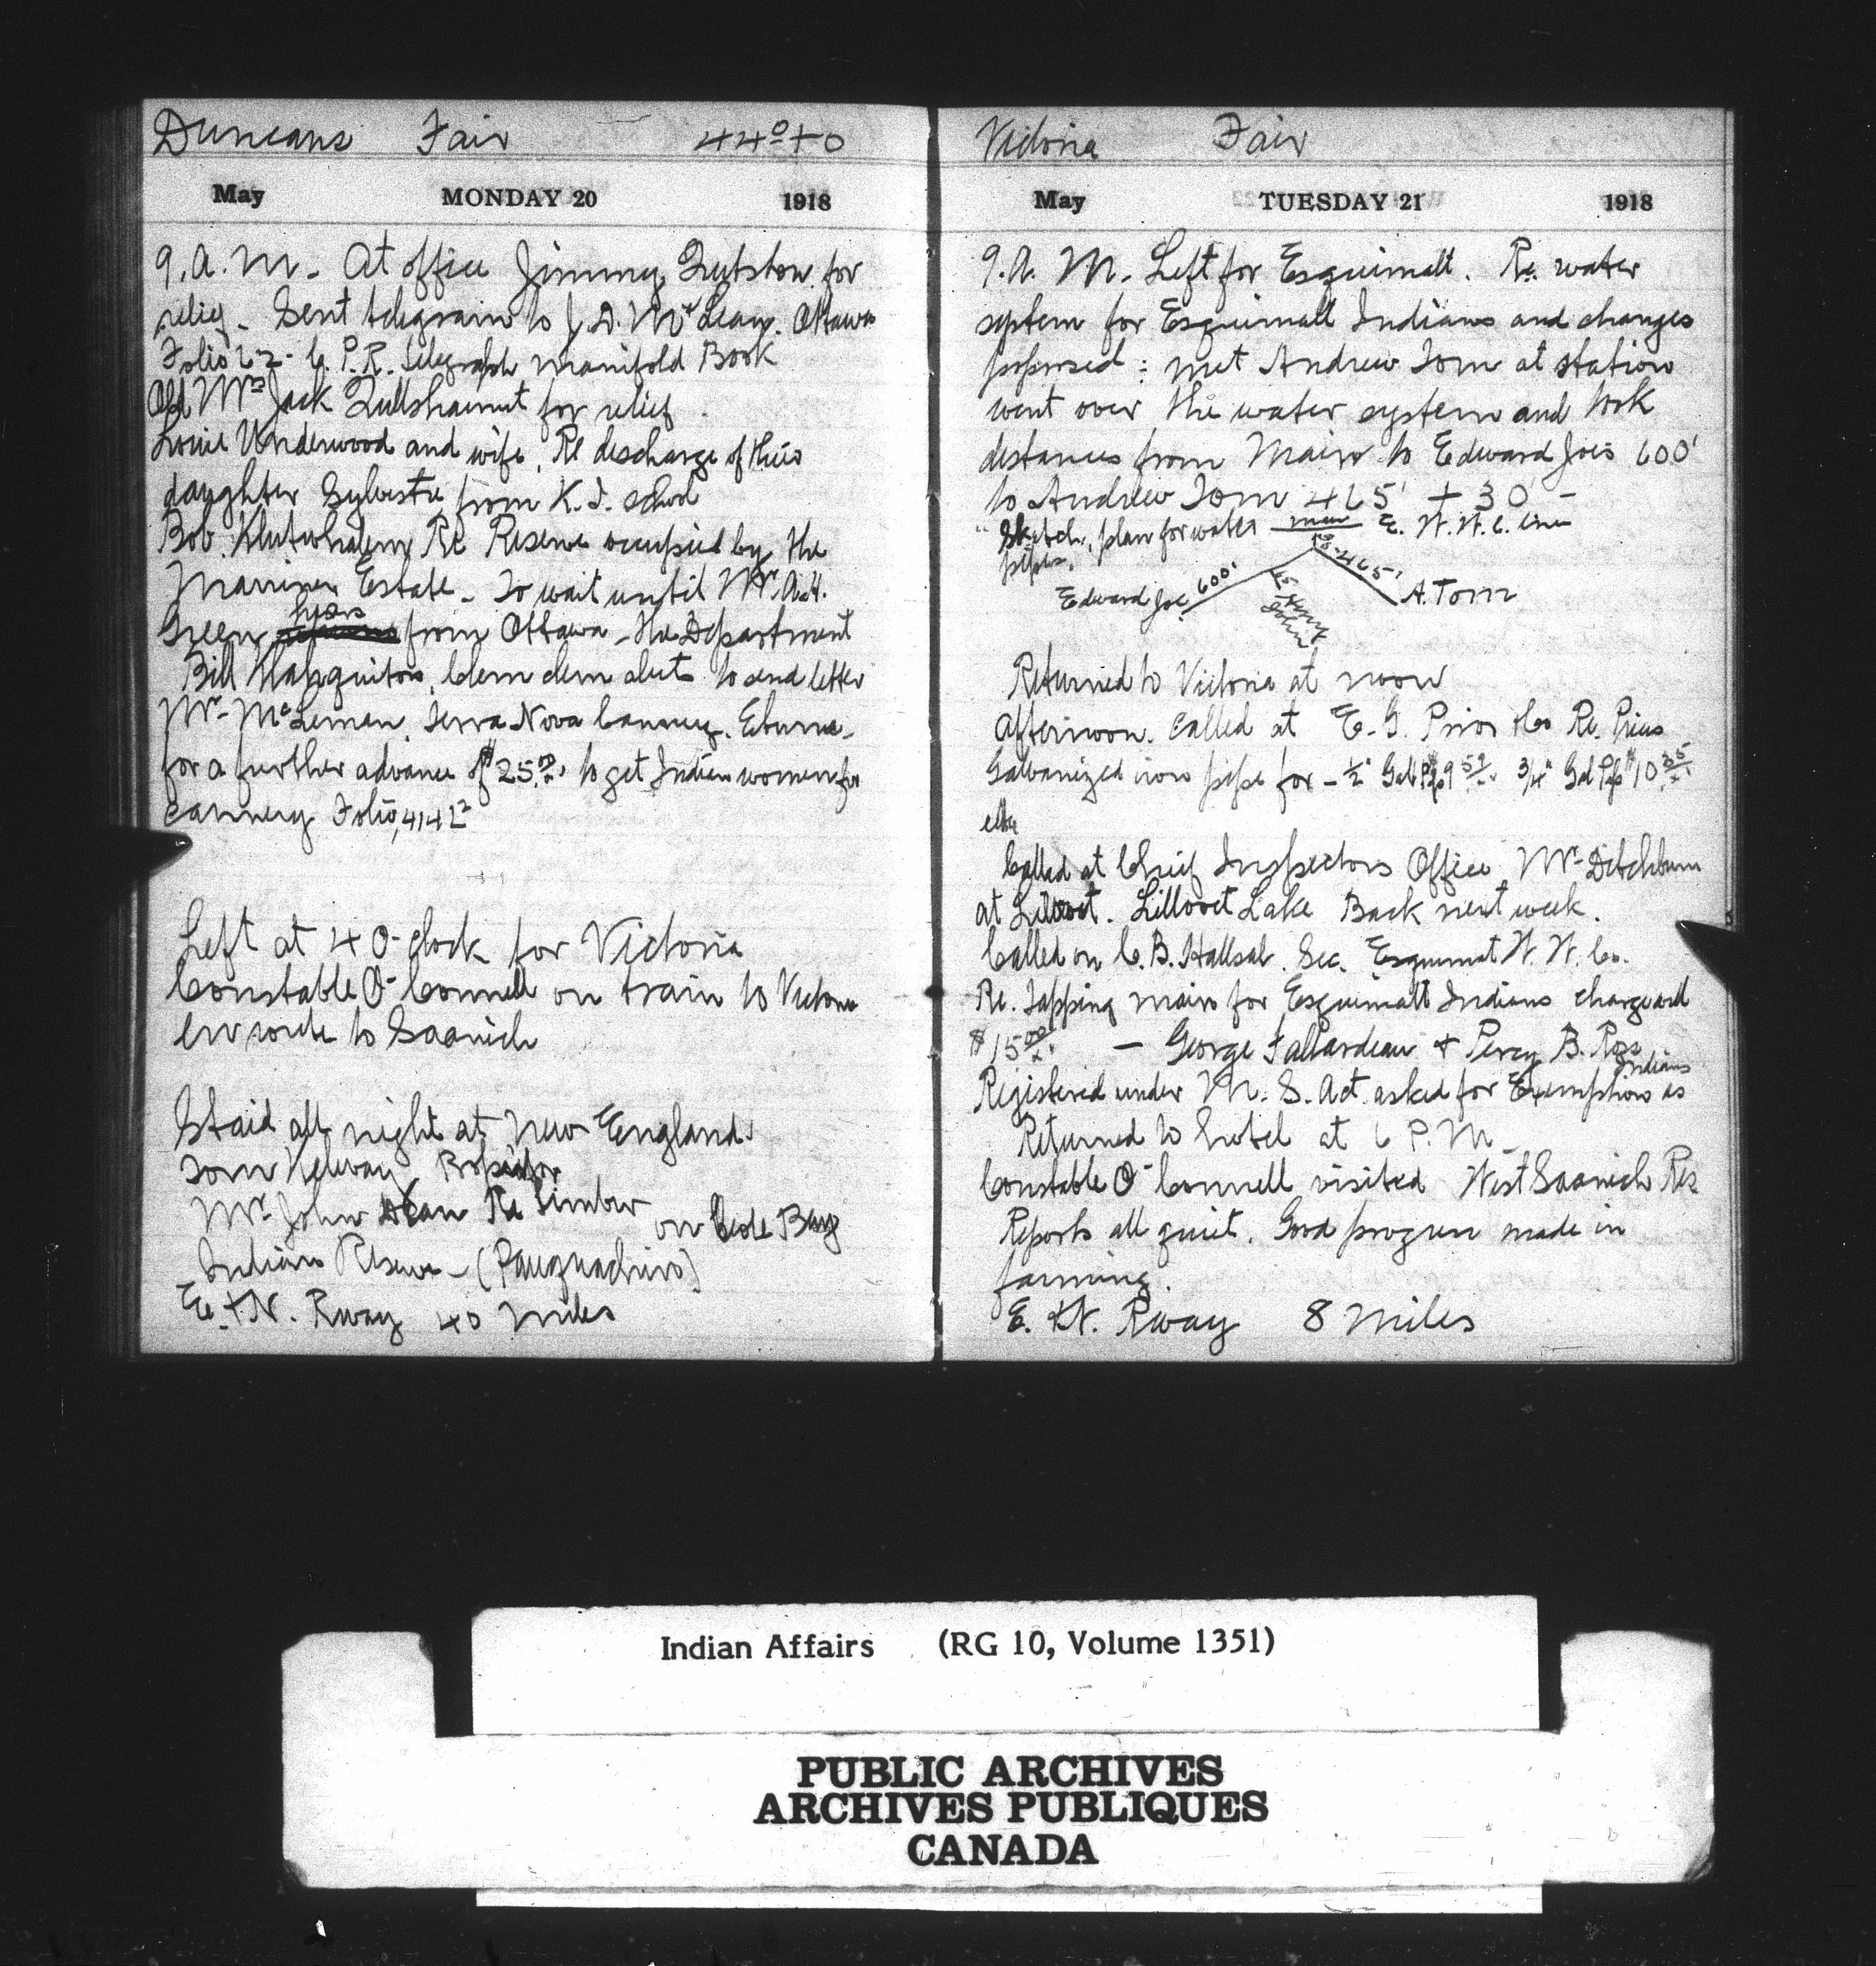 Duncans Fair 44º+0
May MONDAY 20 1918
9.A.M. At office Jimmy for
relief. Sent telegram to J.D. McLean. Ottawa
Folio 22 - C.P.R. Telegraph Manifold Book
Old Mrs Jack for relief
Louie Underwood and wife. Re discharge of their
daughter Sylvestre from K.I. School
Bob. Re Reserve occupied by the
Marriner Estate. To wait until Mr. A.H.
Green hears from Ottawa - the Department
Bill Clem clem cluts to send letter
Mr. McLeman. Terra Nova Cannery. Eburne.
for a further advance of $25.00 to get Indian women for
cannery Folio,
Left at 4 O-clock for Victoria
Constable O'Connell on train to Victoria
en route to Saanich
Staid all night at New England.
Tom Kelway Propietor
Mr. John Dean Re Timber on Cole Bay
Indian Reserve - (Pauquachin)
E. + N. Rway 40 miles
Victoria Fair
May TUESDAY 21 1918
9.A.M. Left for Esquimalt. Re. water
system for Esquimalt Indians and changes
proposed: met Andrew Tom at station
went over the water system and took
distances from Main to Edward Joe's 600'
to Andrew Tom 465' + 30' -
Sketch, plan for water main E. W.W.C. line
pipes.
465'
Edward Joe 600' A. Tom
Returned to Victoria at noon
Afternoon. Called at E.G. Prior & Co Re. Prices
Galvanized iron pipe for - ½" Gal Pipe $9 ¾" Gal Pipe $10.35
Called at Chief Inspectors Office. Mr. Ditchburn
at Lillooet. Lillooet Lake Back next week.
Called on C.B. Hallsal. Sec. Esquimalt W.W. Co.
Re. Tapping main for Esquimalt Indians charge
$15.00 - George Fallardeau + Percy B. Ross
Indians
Registered under M.S. Act asked for Exemptions as
Returned to hotel at 6 P.M.
Constable O'Connell visited West Saanich Res
Reports all quiet. Good progress made in
farming.
E. & N. Rway 8 Miles
Indian Affairs (RG 10, Volume 1351)
PUBLIC ARCHIVES
ARCHIVES PUBLIQUES
CANADA